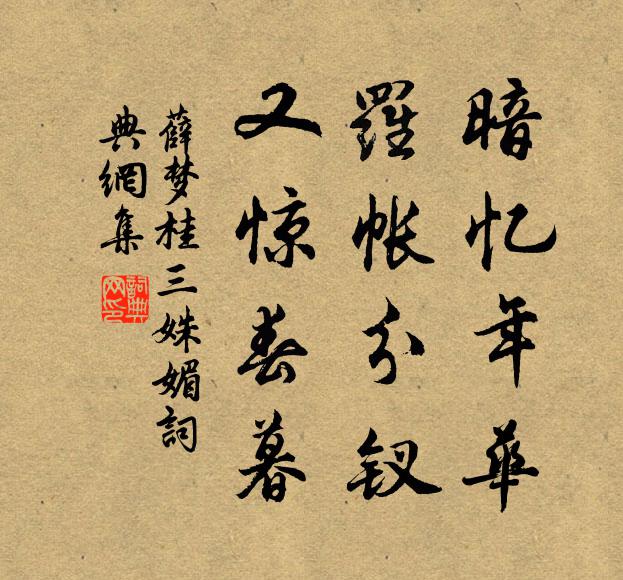 暗忆年华
羅帐分钗
又惊春暮
薛梦桂三姝媚詞
典網集
詞典网印